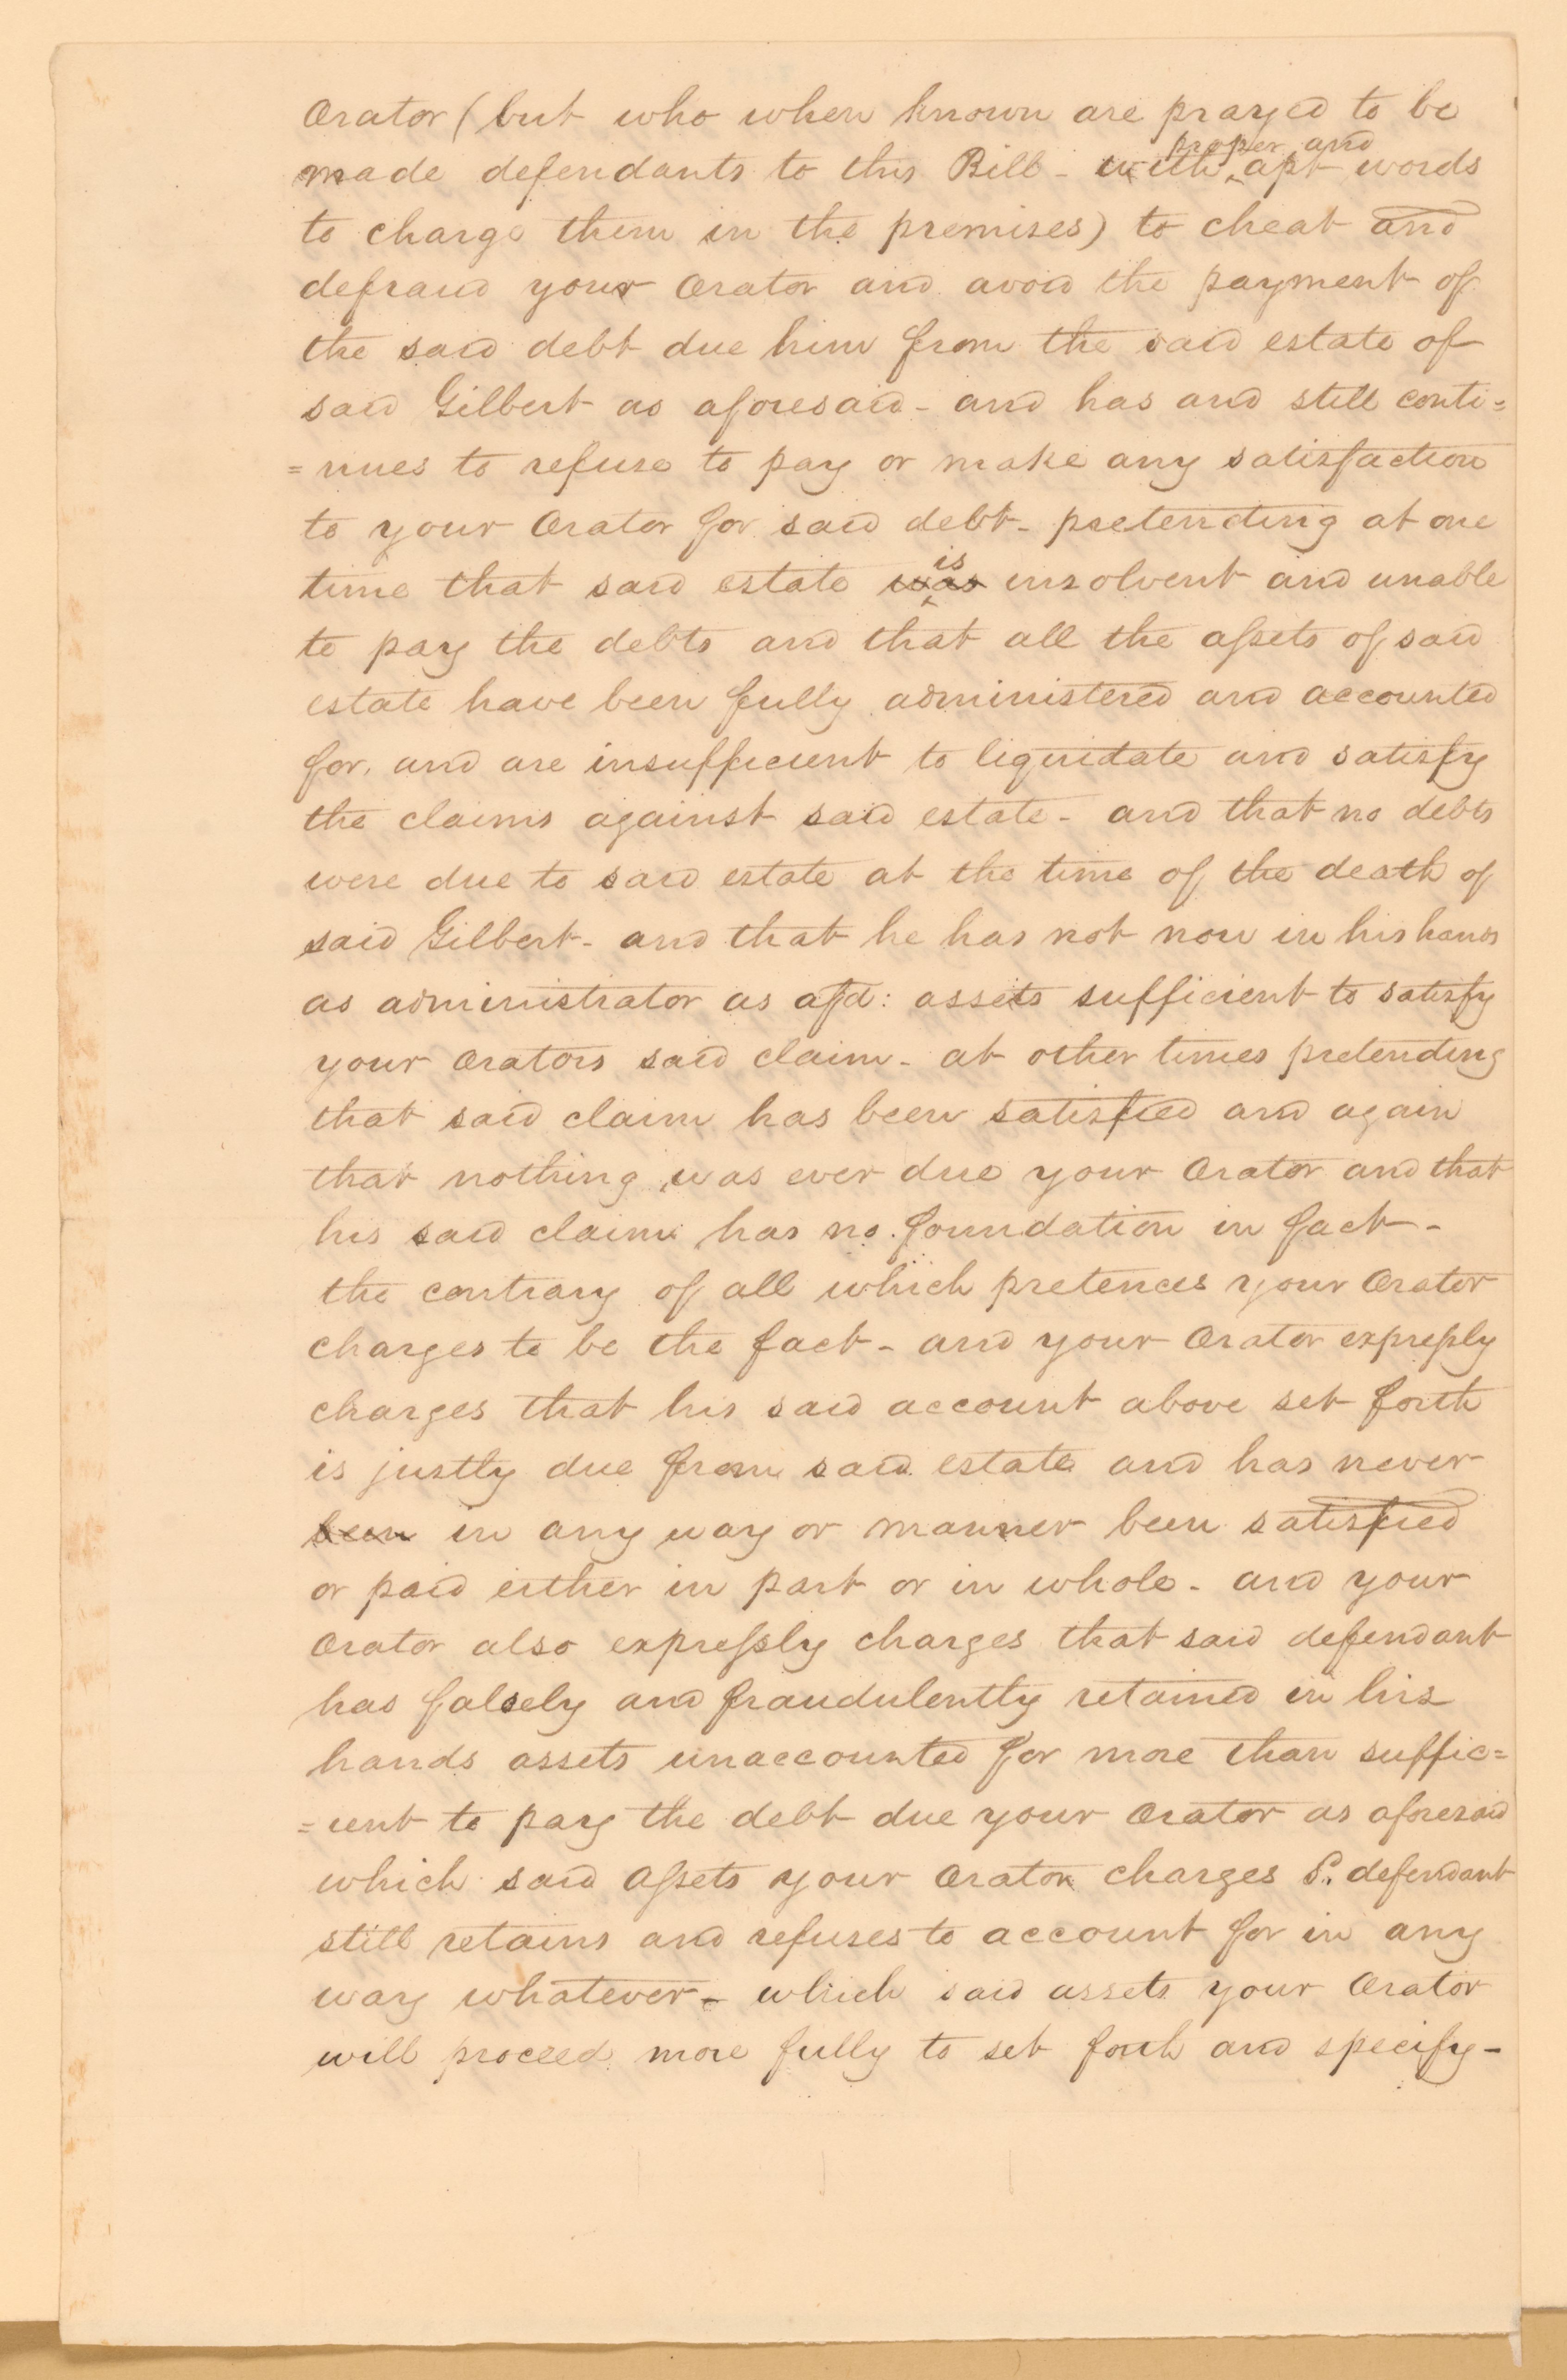 Orator (but who when known are prayed to be
made defendants to this Bill - with proper and apt words
to charge them in the premises) to cheat and
defraud your Orator and avoid the payment of
the said debt due him from the said estate of
said Gilbert as aforesaid - and has and still conti=
=nues to refuse to pay or make any satisfaction
to your Orator for said debt - pretending at one
time that said estate was is insolvent and unable
to pay the debts and that all the assets of said
estate have been fully administered and accounted
for, and are insufficient to liquidate and satisfy
the claims against said estate - and that no debts
were due to said estate at the time of the death of
said Gilbert - and that he has not now in his hands
as administrator as afsd: assets sufficient to satisfy
your Orators said claim - at other times pretending
that said claim has been satisfied and again
that nothing was ever due your Orator and that
his said claim has no foundation in fact -
the contrary of all which pretences your Orator
charges to be the fact - and your Orator expressly
charges that his said account above set forth
is justly due from said estate and has never
been in any way or manner been satisfied
or paid either in part or in whole - and your
Orator also expressly charges that said defendant
has falsely and fraudulently retained in his
hands assets unaccounted for more than suffic=
=ient to pay the debt due your Orator as aforesaid
which said assets your Orator charges S. defendant
still retains and refuses to account for in any
way whatever - which said assets your Orator
will proceed more fully to set forth and specify -